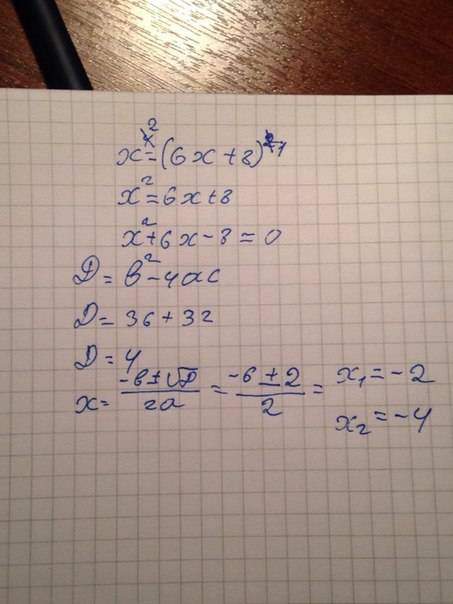 x² = (6x+8)¹
x² = 6x+8
x²+6x-8=0
D = b²-4ac
D = 36+32
D = 4
x = (-b±√D)/(2a) = (-6±2)/2 = x₁ = -2
x₂ = -4